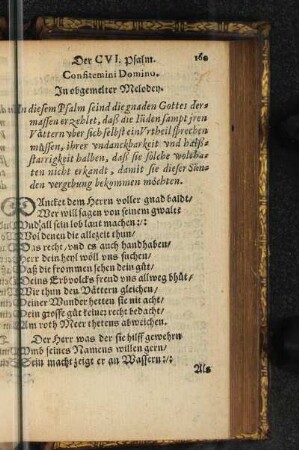 Der CVI. Psalm.
160
Confitemini Domino.
In obgemelter Melodey.
In diesem Psalm seind die gnaden Gottes der-
massen erzehlet, daß die Jüden sampt jren
Vättern vber sich selbst ein Vrtheil sprechen
müssen, ihrer vndanckbarkeit vnd halß-
starrigkeit halben, daß sie solche wolthа-
ten nicht erkandt, damit sie dieser Sün-
den vergebung bekommen möchten.
DAncket dem Herrn voller gnad baldt/
Wer will sagen von seinem gwalt
Vnd all sein lob laut machen:/:
Wol denen die allezeit thun/
Das recht/ vnd es auch handhaben/
Herr dein heyl wöll vns suchen/
Daß die frommen sehen dein güt/
Deins Erbvolcks freud vns allweg bhüt/
Wir thun den Vättern gleichen/
Deiner Wunder hetten sie nit acht/
Dein grosse güt keiner recht bedacht/
Am roth Meer thetens abweichen.
Der Herr was der sie hilff gewehrn
Vmb seines Namens willen gern/
Sein macht zeigt er an Wassern:/:
Als